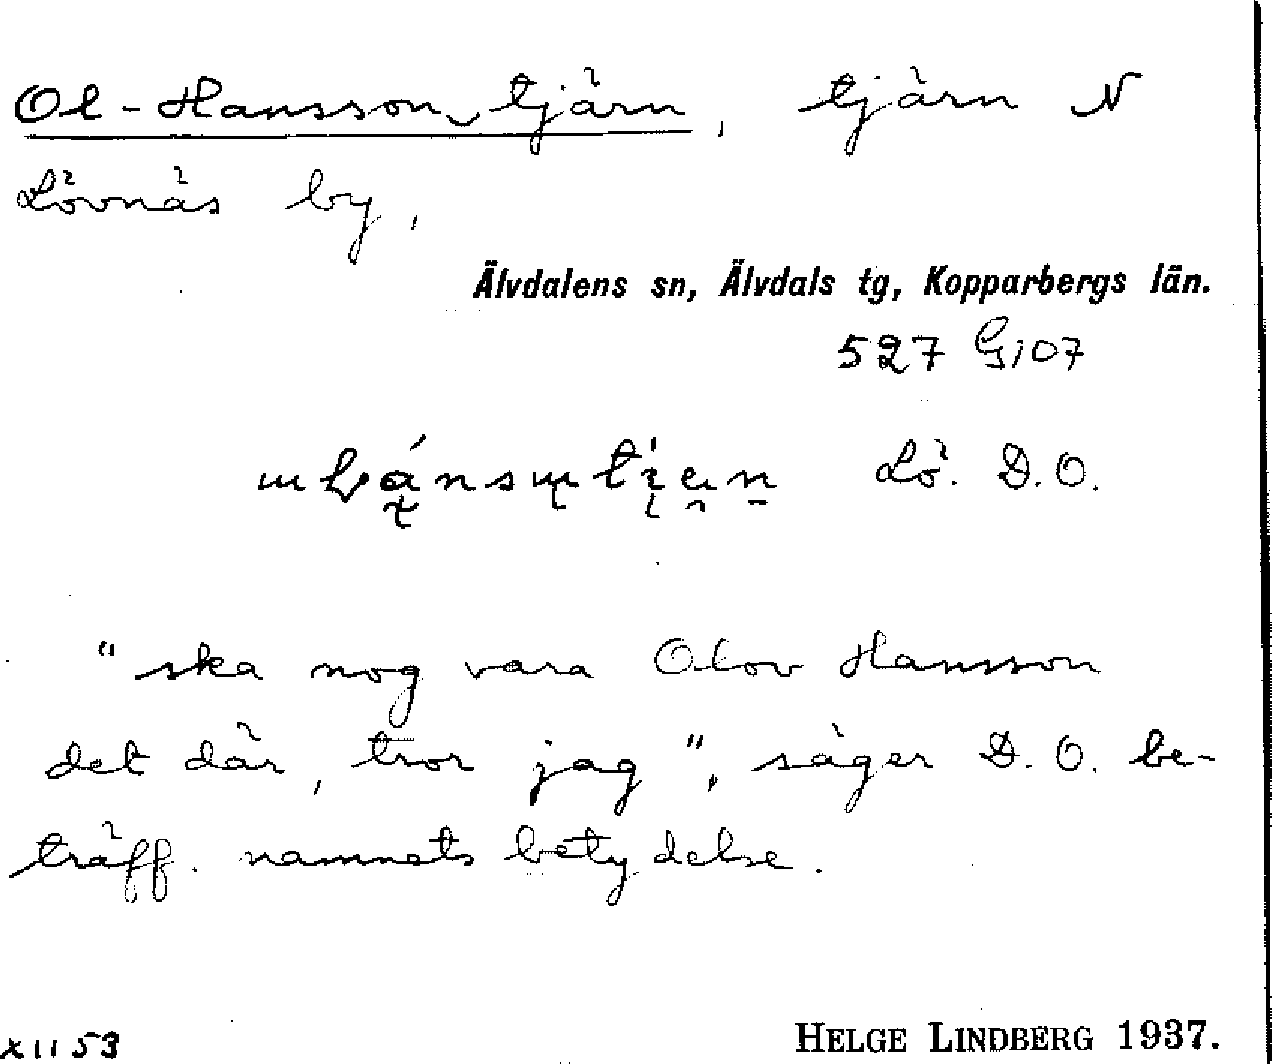 Ol-Hansson‿tjärn, tjärn N
Lövnäs by,
Älvdalens sn, Älvdals tg, Kopparbergs län.
527 G107
Lö. D.O.
"ska nog vara Olov Hansson
det där, tror jag", säger D.O. be-
träff. namnets betydelse.
X11 53
HELGE LINDBERG 1937.